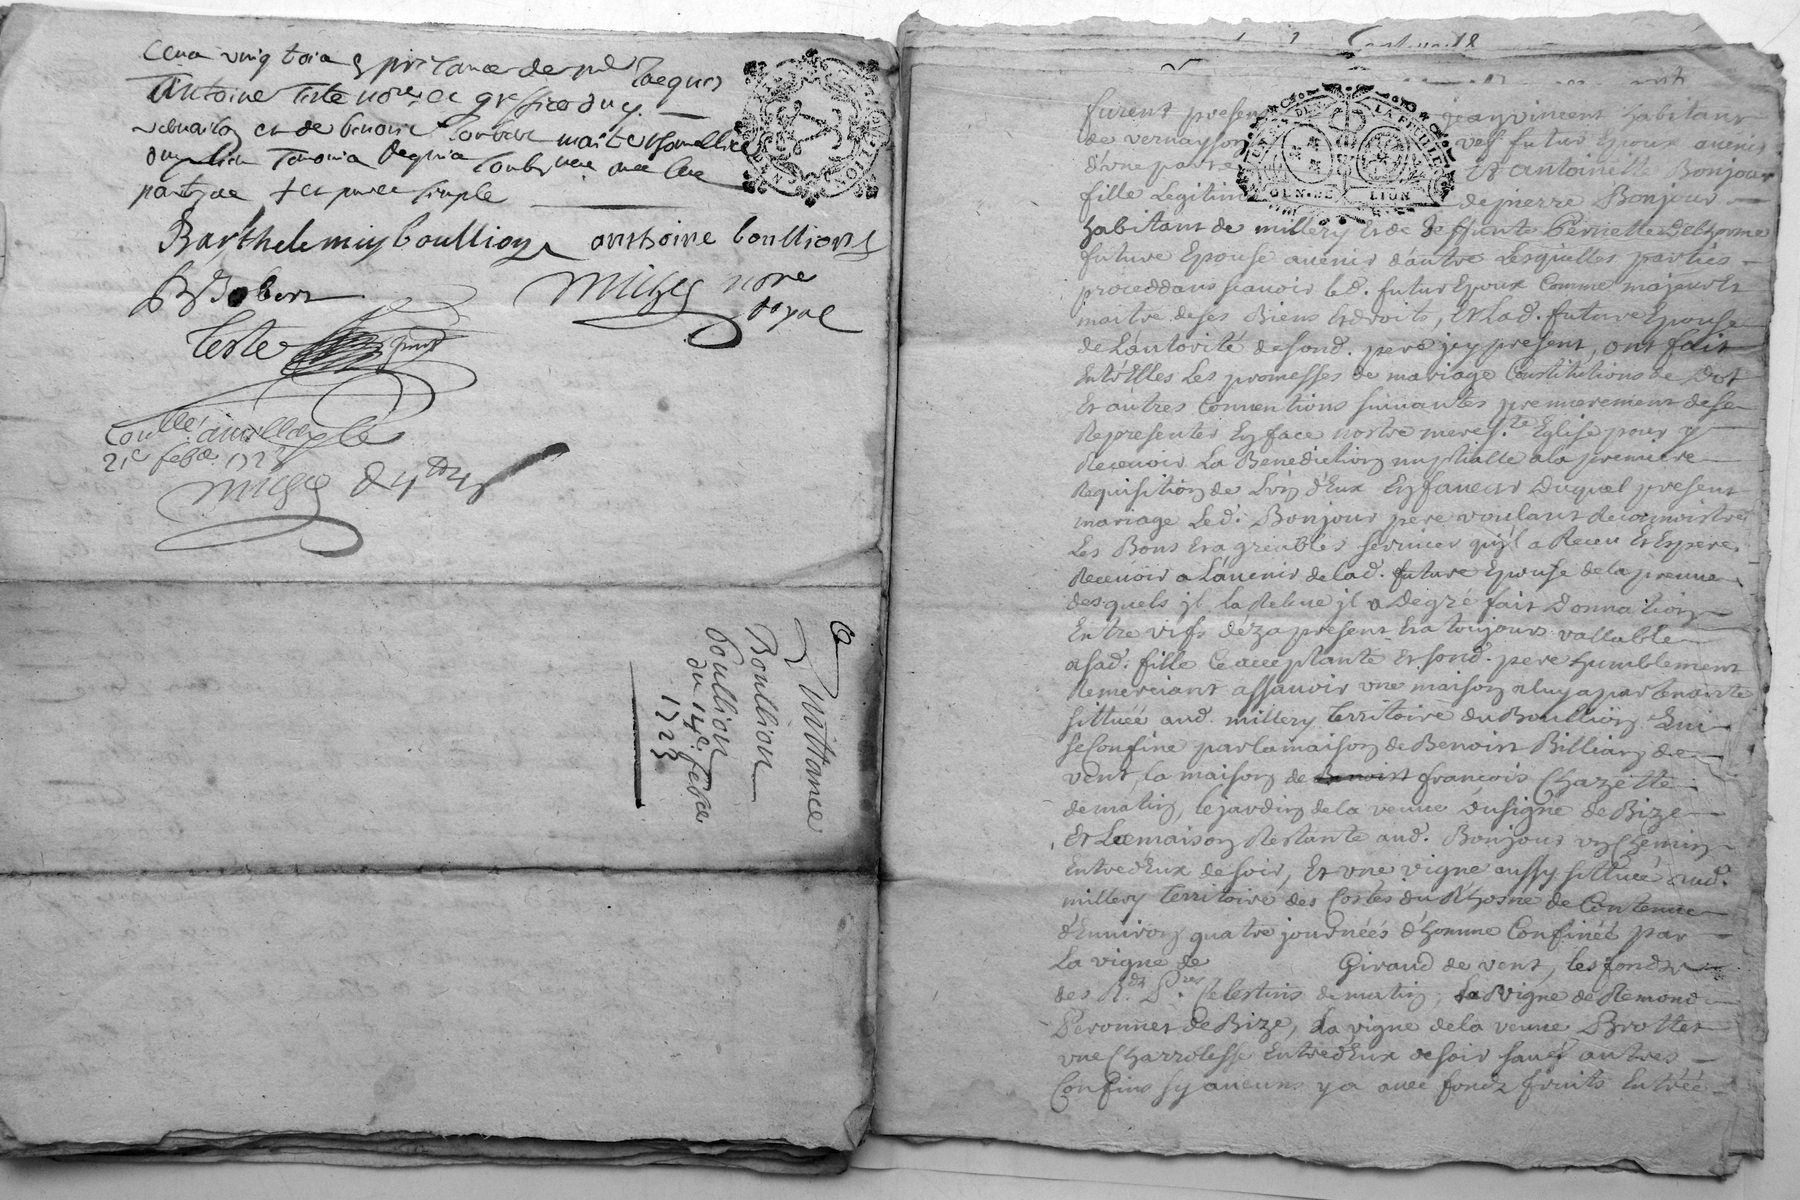 cens vingt trois presance de me Jacques
Antoine Teste nore et greffier du
vernaison et de benoist maitre
partyes et simple
Barthelemy boullion anthoine boullion
B Jobert michel nore
royal
Teste
Conllé a millery le
21e febr. 1723
michel
Quittance
Boullion
Boullion
du 14e febr
1723
furent presen jean vincent habitant
de vernayson futur Epoux avenir
d'vne part Et antoinette Bonjour
fille Legitim de pierre Bonjour
habitant de millery Et de deffunte Pernette Delhorme
future Epouse avenir d'autre Lesquelles parties
proceddans scauoir led. futur Epoux Comme majeur Et
maitre de ses Biens Et droits, Et Lad. future Epouse
de L'autorité de sond. pere jcy present, ont fait
Entr'Elles Les promesses de mariage Constitutions de Dot
Et autres Conuentions suiuantes premierement de se
Representer En face nostre mere ste Eglise pour y
Receuoir La Benediction nuptialle a la premiere
Requisition de L'vn d'Eux En faueur Duquel present
mariage Led. Bonjour pere voulant Reconnoistre
Les Bons Et agreables seruices qu'jl a Receu Et Espere
Receuoir a L'auenir de lad. future Epouse de la preuue
desquels jl La Releue jl a Degré fait Donnation
Entre vifs déza present Et a toujours vallable
a sad. fille Ce acceptante Et sond. pere humblement
Remerciant assauoir vne maison a luy apartenante
sittuée aud. millery territoire du Boullion Qui
se Confine par la maison de Benoist Billian de
vent, la maison de Benoist françois Chazette
de matin, le jardin de la veuue Dusigne de Bize
Et La maison Restante aud. Bonjour vn Chemin
Entred'Eux de soir, Et vne vigne aussy sittuée aud.
millery territoire des Costes du Rhosne de Contenue
d'Enuiron quatre journéés d'homme Confinéé par
La vigne de Giraud de vent, les fonds
des R.ds P.res Celestins de matin, La vigne de Remond
Peronnet de Bize, La vigne de la veuue Brottet
vne Charrolesse Entred'Eux de soir sauf autres
Confins sy aucuns y a auec fondz fruits Entréé